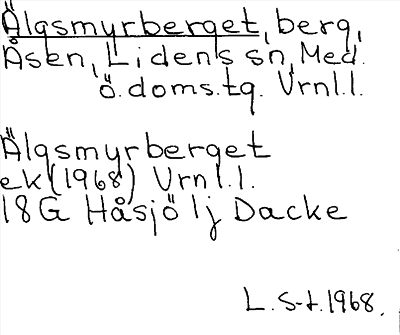 Älgsmyrberget, berg,
Åsen, Lidens sn, Med.
ö. doms.tg. Vrnl.l.
Älgsmyrberget
ek (1968) Vrnl.l.
18G Håsjö lj Dacke
L. S-t. 1968.